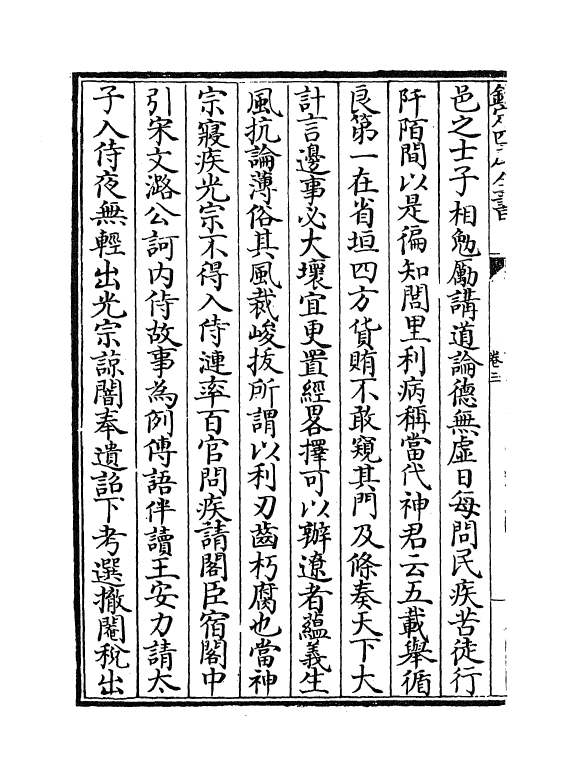 欽定四庫全書
卷三
邑之士子相勉勵講道論德無虛日每問民疾苦徒行
阡陌間以是徧知閭里利病稱當代神君云五載舉循
良第一在省垣四方貨賄不敢窺其門及條奏天下大
計言邊事必大壞宜更置經畧擇可以辦遼者蘊義生
風抗論薄俗其風裁峻抜所謂以利刃齒朽腐也當神
宗寢疾光宗不得入侍漣率百官問疾請閣臣宿閣中
引宋文潞公訶内侍故事為例傳語伴讀王安力請太
子入侍夜無輕出光宗諒闇奉遺詔下考選撤閹稅出